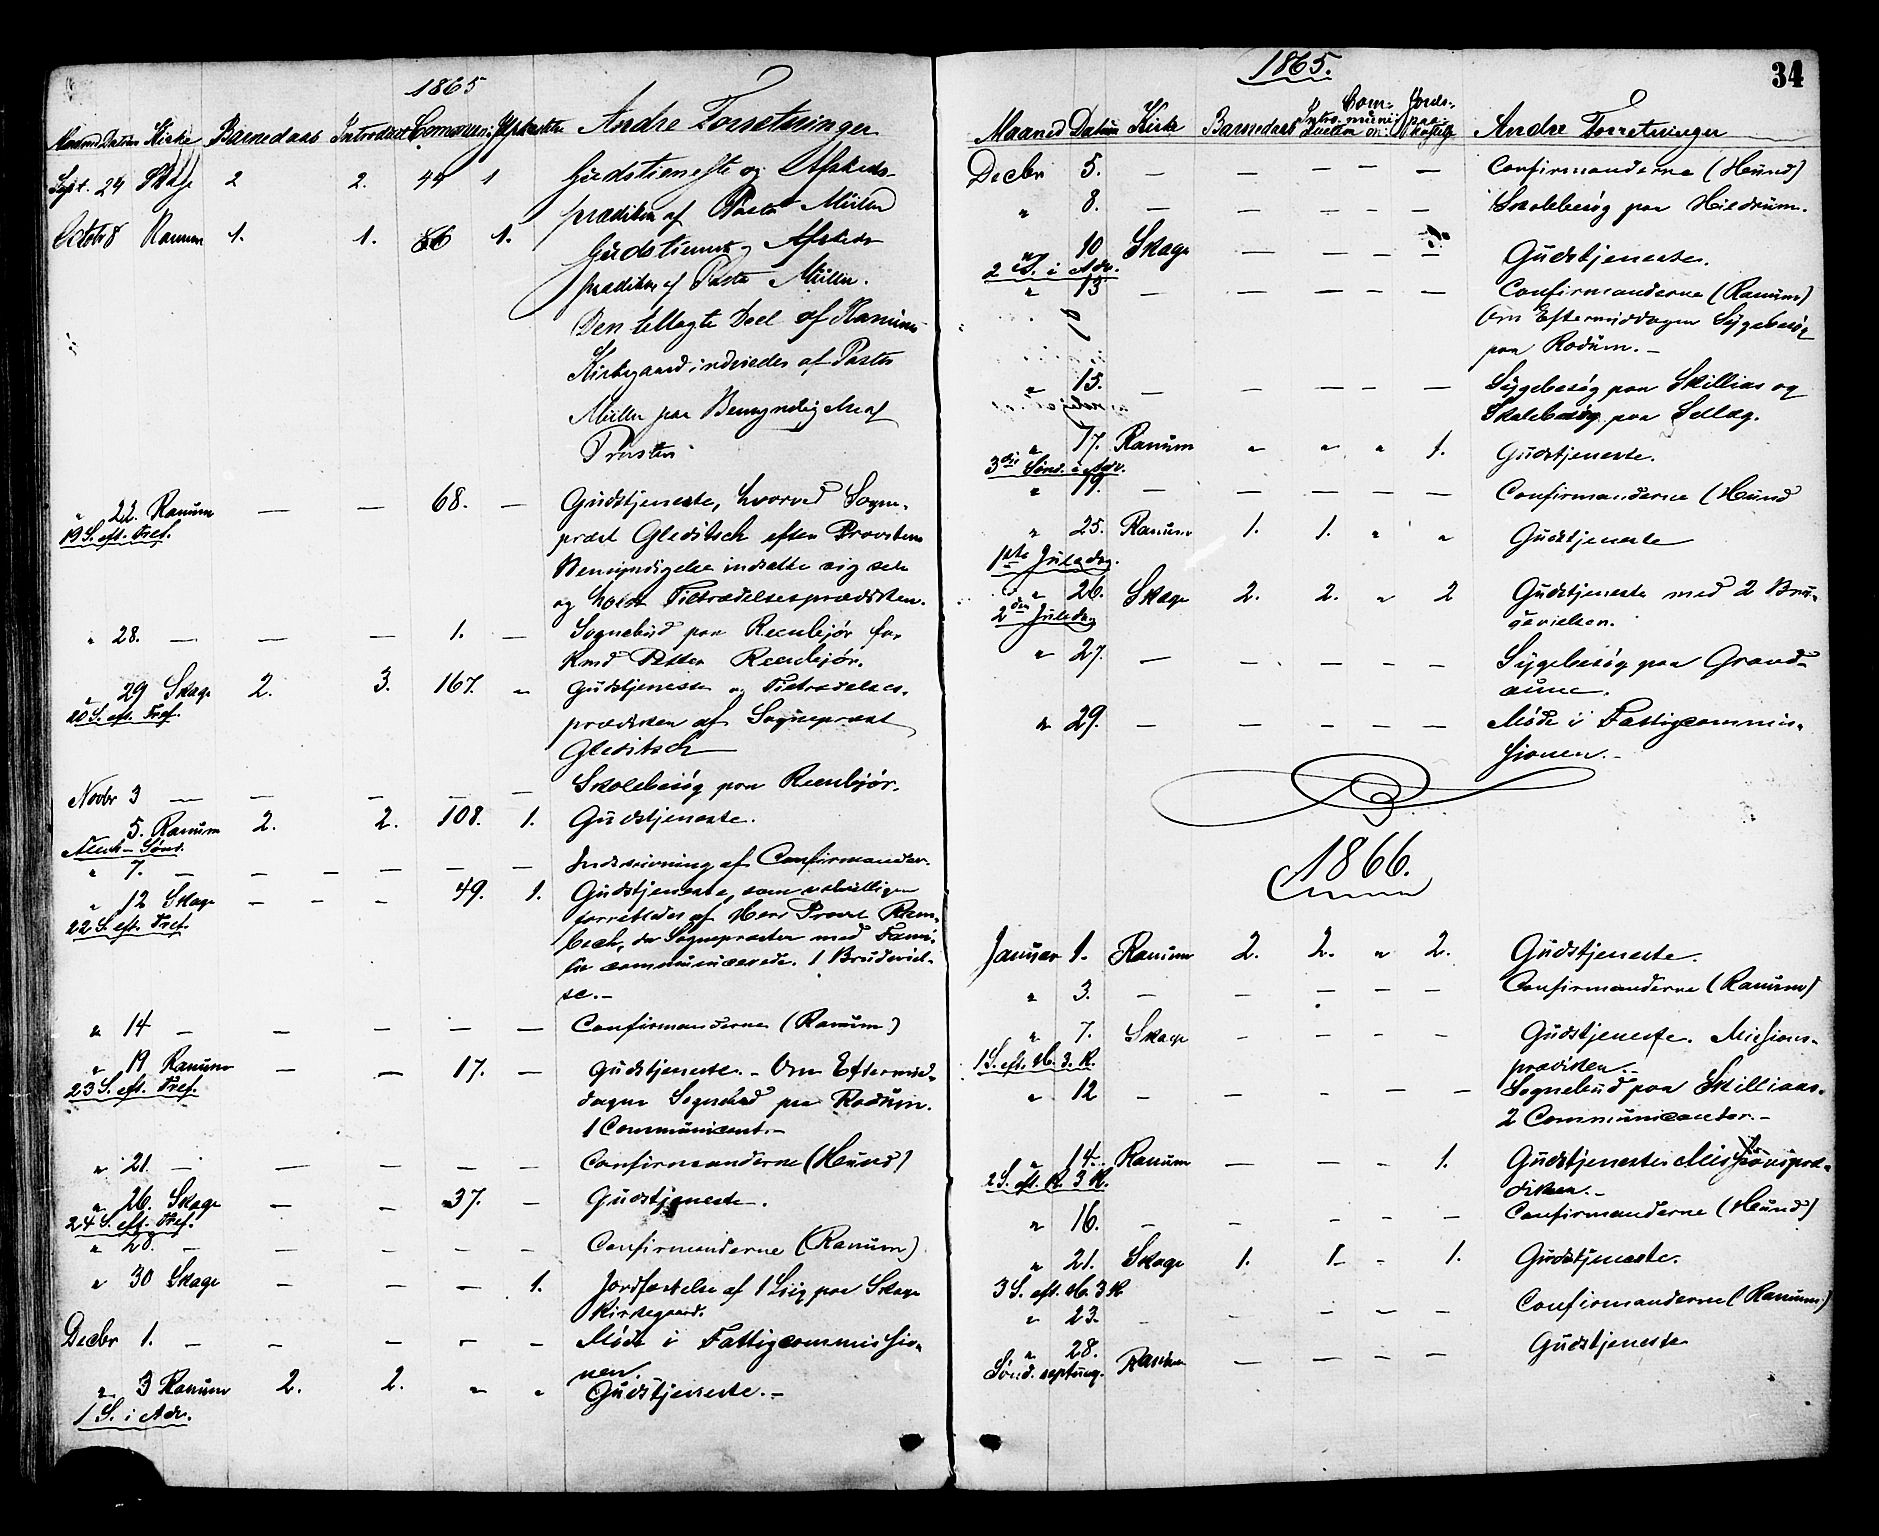 1865
Maaned Datum Kirke Barnedaab Introduct. Communic. Jordfæstelse Andre Forretninger
Sept. 24 Skage 2 2. 44 1 Gudstieneste og Afskeds-
prædiken af Pastor Müller
Octobr 8 Ranum 1. 1. 86 1. Gudstieneste og Afskeds
prædiken af Pastor Müller.
Den tillagte Deel af Ranums
Kirkegaard indviedes af Pastor
Müller paa Bemyndigelse af
Provsten
" 22. Ranum — — 68. — Gudstjeneste, hvorved Sogne-
19 S. eft. Tref. præst Gleditsch efter Provstens
Bemyndigelse indsatte sig selv
og holdt Tiltrædelsesprædiken.
" 28. — — — 1. — Sognebud paa Reenbjør for
Knud Petter Reenbjør.
" 29 Skage 2. 3. 167. " Gudstjeneste og Tiltrædelses-
20 S. eft. Tref. prædiken af Sognepræst
Gleditsch
Novbr 3 — — — — — Skolebesøg paa Reenbjør.
5. Ranum 2. 2. 108. 1. Gudstjeneste.
Alleh- Sønd.
" 7. — — — — — — Indskrivning af Confirmander.
" 12 Skage — — — 49. 1. Gudstjeneste, som velvilligen
22 S. eft. Tref. forrettedes af Herr Provst
da Sognepræsten med Fami-
lie communicerede. 1 Brudeviel-
se.—
" 14 — — — — — Confirmanderne (Ranum)
" 19 Ranum — — 17. — Gudstjeneste. – Om Eftermid-
23 S. eft. Tref. dagen Sognebud paa Rodum.
1 Communicant.—
" 21. — — — — — Confirmanderne (Heund)
" 26. Skage — — 37. — Gudstjeneste.
24 S. eft. Tref.
" 28. — — — — — Confirmanderne (Ranum)
" 30 Skage — — — 1. Jordfæstelse af 1 Liig paa Skage
Kirkegaard.
Decbr 1. — — — — — Møde i Fattigcommissio-
nen.
" 3 Ranum 2. 2. " " Gudstjeneste.—
1 S. i Adv.
1865.
34
Maaned Datum Kirke Barnedaab Introduction Communi- on. Jords- paa- Andre Forretninger
Decbr 5. — — — — — Confirmanderne (Heund)
" 8. — — — — — Skolebesøg paa Hildrum.
" 10 Skage — — — — Gudstjeneste.
2 S. i Adv.
" 13 — — — — — Confirmanderne (Ranum)
Om Eftermiddagen Sygebesøg
paa Rodum.—
" 15. — — — — — Sygebesøg paa Skillias og
Skolebesøg paa Sellæg.
" 17. Ranum " " " 1. Gudstjeneste.
3die Sønd. i Adv.
" 19. — — — — — Confirmanderne (Heund
" 25. Ranum 1. 1. " " Gudstjeneste
1ste Juledag.
" 26. Skage 2. 2. " 2 Gudstjeneste med 2 Bru-
2den Juledag devielser.
" 27. — — — — — Sygebesøg paa Grand-
aune.
" 29. — — — — — Møde i Fattigcommis-
sionen.—
1866.
Januar 1. Ranum 2. 2. " 2. Gudstjeneste.
" 3. — — — — — Confirmanderne (Ranum)
" 7. Skage — — — — Gudstjeneste. Missions-
1 S. eft. H. 3. K. prædiken.—
" 12 — — — — — Sognebud paa Skilliaas-
2 Communicanter.—
" 14. Ranum — — — 1. Gudstjeneste Missionspræ-
2 S. eft. H. 3 K. diken.—
" 16. — — — — — Confirmanderne (Heund)
" 21. Skage 1. 1. — 1. Gudstjeneste.
3 S. eft. H. 3 K
" 23. — — — — — Confirmanderne (Ranum)
" 28. Ranum — — — — Gudstjeneste
Sønd. septuag.